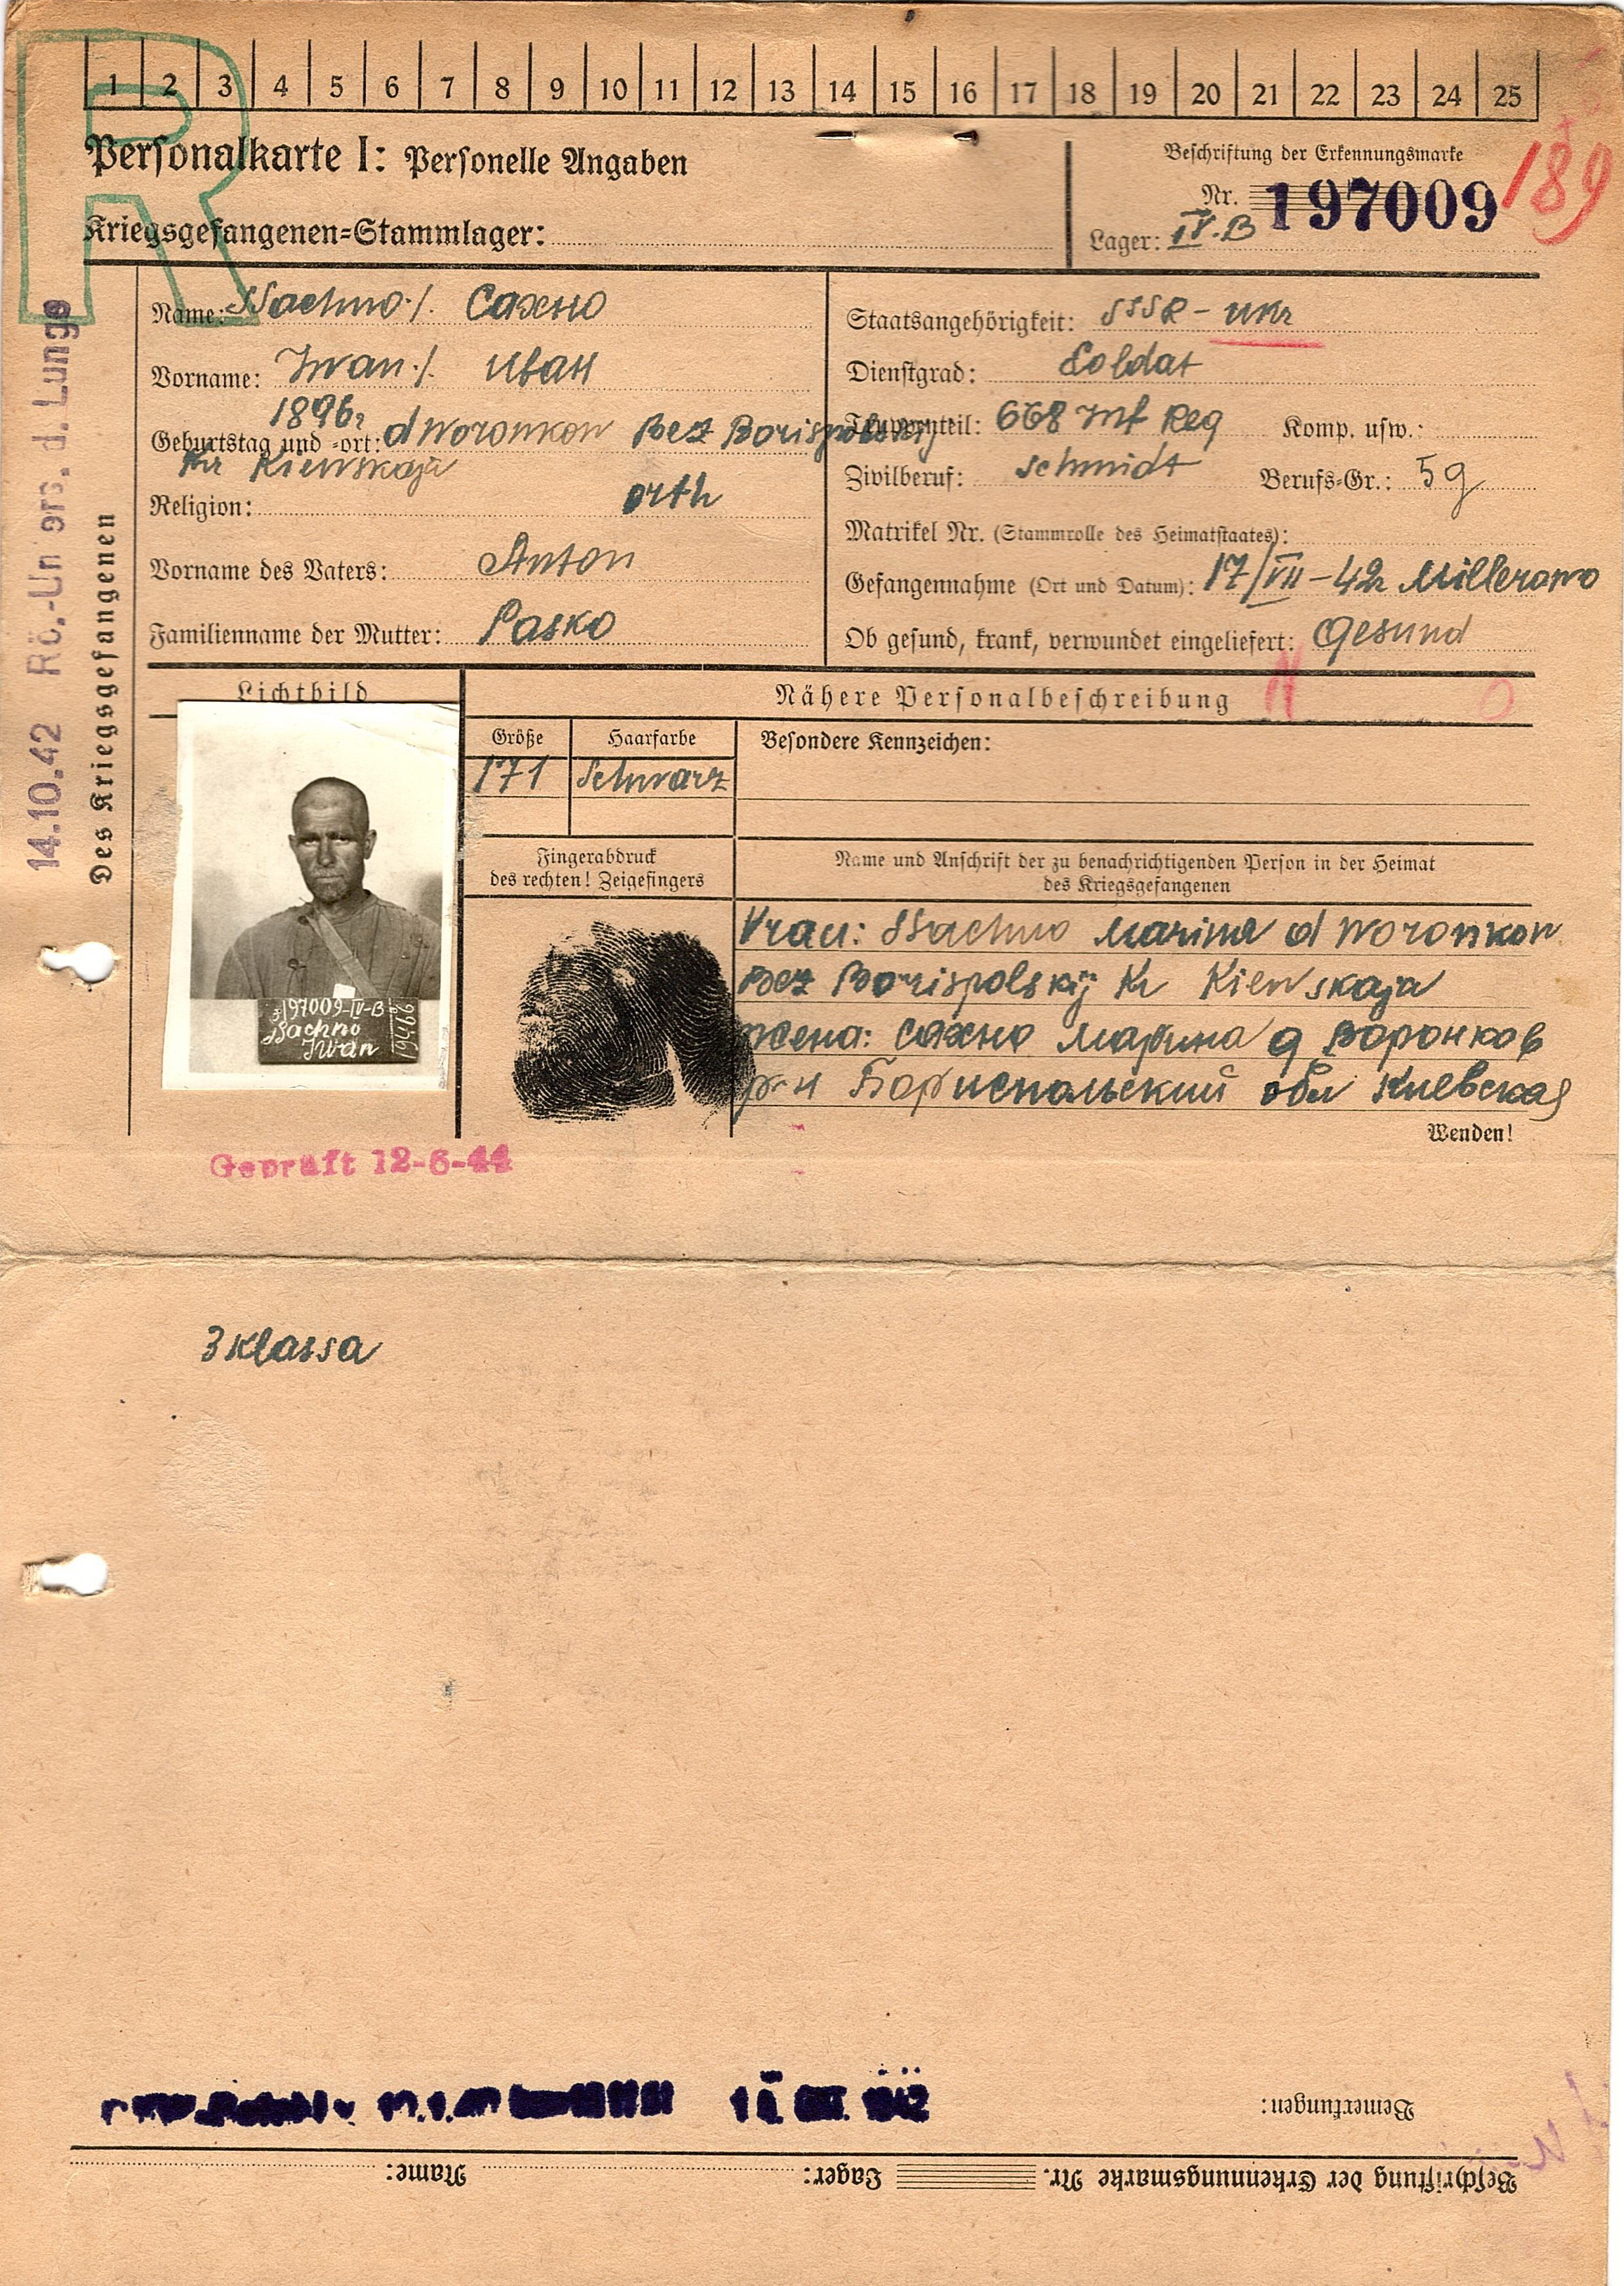 1 2 3 4 5 6 7 8 9 10 11 12 13 14 15 16 17 18 19 20 21 22 23 24 25
R
Personalkarte I: Personelle Angaben
Kriegsgefangenen=Stammlager:
Beschriftung der Erkennungsmarke
Nr. 197009
189
Lager: IV.B
Name: Ssachno./. Сахно
Vorname: Iwan./. Иван
1896
Geburtstag und =ort: d Woronkow Bez Borispolskij
Kr Kiewskaja
Religion: orth
Vorname des Vaters: Anton
Familienname der Mutter: Pasko
Staatsangehörigkeit: SSSR - ukr
Dienstgrad: Soldat
Truppenteil: 668 Inf Reg Komp. usw.:
Zivilberuf: Schmidt Berufs=Gr.: 5g
Matrikel Nr. (Stammrolle des Heimatstaates):
Gefangennahme (Ort und Datum): 17/VII-42 Millerowo
Ob gesund, krank, verwundet eingeliefert: Gesund
Des Kriegsgefangenen
14.10.42 Rö.-Un ers. d. Lunge
Lichtbild
Nähere Personalbeschreibung
Größe
171
Haarfarbe
Schwarz
Besondere Kennzeichen:
197009-IV-B
Ssachno
Iwan
Fingerabdruck
des rechten! Zeigefingers
Name und Anschrift der zu benachrichtigenden Person in der Heimat
des Kriegsgefangenen
Vrau: Ssachno Marina d Woronkow
Bez Borispolskij Kr Kiewskaja
жена: Сахно Марина д Воронков
р-н Бориспольский обл Киевская
Wenden!
Geprüft 12-6-44
3 Klassa
Bemerkungen:
Beschriftung der Erkennungsmarke Nr. Lager: Name: